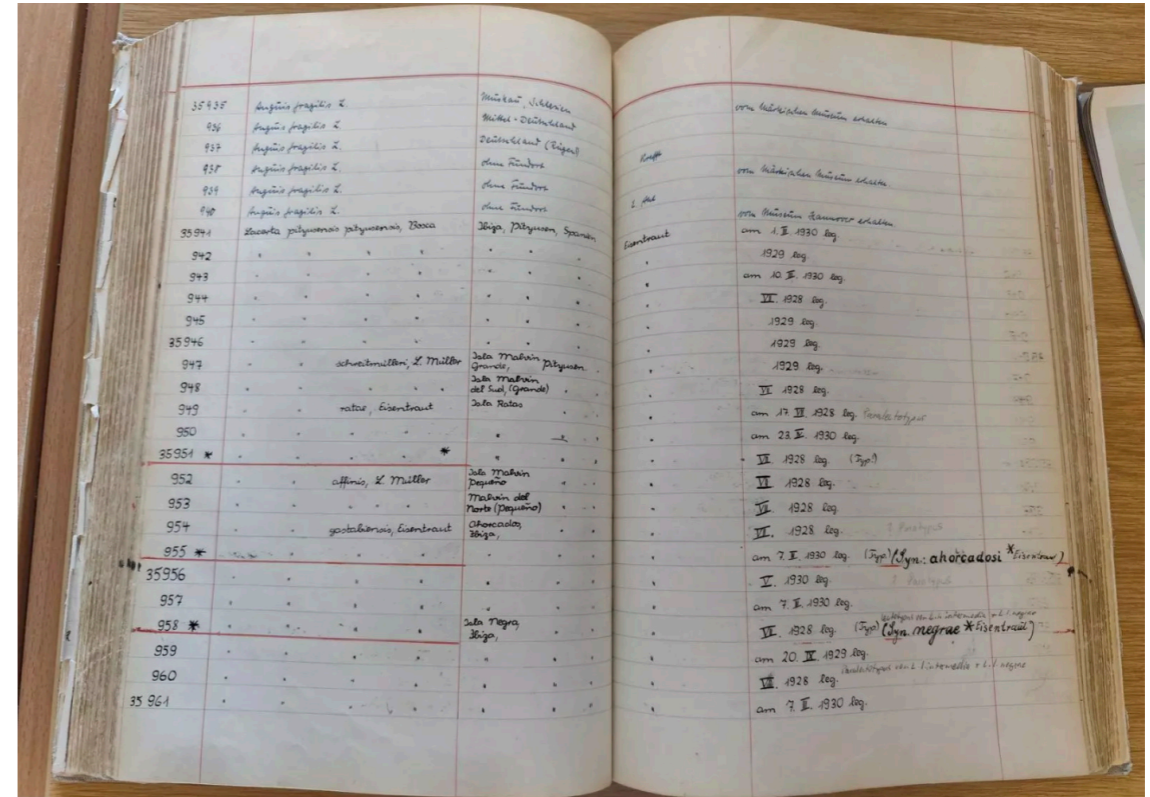 35935 Anguis fragilis L. Muskau, Schlesien vom Märkischen Museum erhalten
936 Anguis fragilis L. Mittel-Deutschland
937 Anguis fragilis L. Deutschland (Rügen)
938 Anguis fragilis L. ohne Fundort vom Märkischen Museum erhalten
939 Anguis fragilis L. ohne Fundort
940 Anguis fragilis L. ohne Fundort vom Museum Hannover erhalten
35941 Lacerta pityusensis pityusensis, Bosca Ibiza, Pityusen, Spanien Eisentraut am 1. II. 1930 leg.
942 " " " " " " " " 1929 leg.
943 " " " " " " " " am 10. II. 1930 leg.
944 " " " " " " " " VI. 1928 leg.
945 " " " " " " " " 1929 leg.
35946 " " " " " " " " 1929 leg.
947 " " schreitmülleri, L. Müller Isla Malvin Grande, Pityusen " " 1929 leg.
948 " " " " Isla Malvin del Sud, (Grande) " " " VI 1928 leg.
949 " " ratae, Eisentraut Isla Ratas " " " am 17. VI 1928 leg.
950 " " " " " " " " am 23. II. 1930 leg.
35951 * " " " * " " " " VI. 1928 leg. (Typ!)
952 " " affinis, L. Müller Isla Malvin Pequeño " " " VI 1928 leg.
953 " " " " Malvin del Norte (Pequeño) " " " VI. 1928 leg.
954 " " gastabiensis, Eisentraut Ahorcados, Ibiza, " " " VI. 1928 leg. 2 Paratypus
955 * " " " " " " " " am 7. II. 1930 leg. (Typ) (Syn.: ahorcadosi * Eisentraut)
35956 " " " " " " " " II. 1930 leg. 2 Paratypus
957 " " " " " " " " am 7. II. 1930 leg.
958 * " " " " Isla Negra, Ibiza, " " " VI. 1928 leg. (Typ) (Syn. negrae * Eisentraut)
959 " " " " " " " " am 20. 1929 leg.
960 " " " " " " " " 1928 leg.
35961 " " " " " " " " am 7. II. 1930 leg.